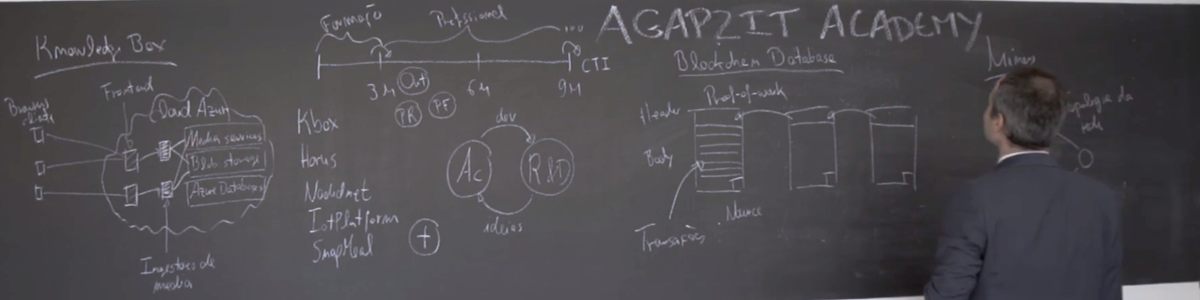 AGAP2IT ACADEMY
Knowledge Box
Frontend
Cloud Azure
Media services
Blob storage
Azure Databases
Ingestores de
media
Formação
Profissional
...
3M
6M
9M
CTI
Out
PR
PE
Kbox
Horus
IotPlatform
SnapMeal
+
dev
Ac
R&D
ideias
Blockchain Database
Proof-of-work
Header
Body
Transações
Nounce
topologia da
rede